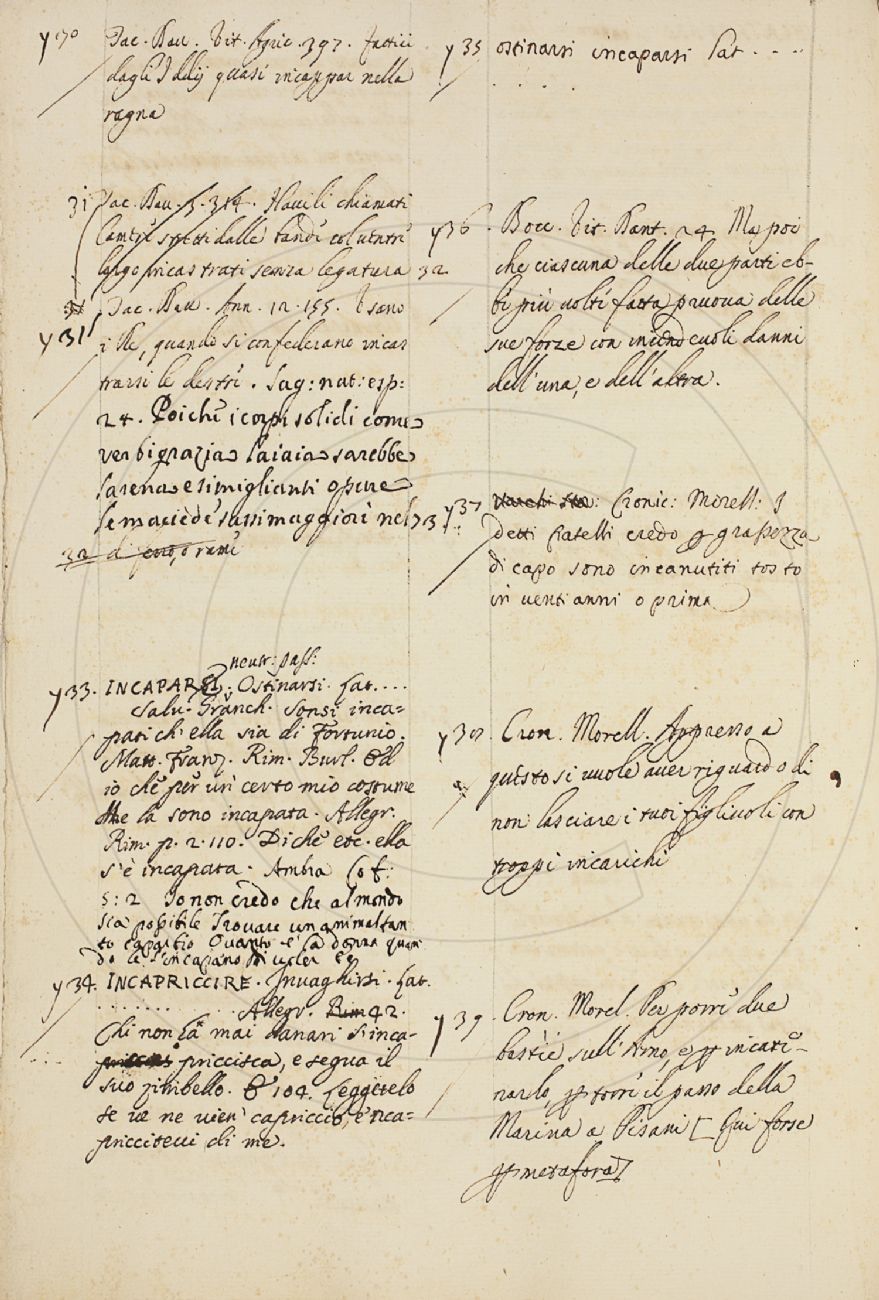 y 30 Tac. Dav. Vit. Agric. 397. fattici
dagli Iddij quasi incappar nella
ragna
31 Tac. Dav. 3. 314. Navili chiamati
largo incastrati senza legatura 32
Tac. Dav. Ann. 12. 155. Usano
y 31 i Re, quando si confederano incas
trarsi le destre. Sag: nat: esp:
24. Poiche i corpi solidi come
verbigrazia l'aiaia sarebbe
l'arena e simiglianti opure
le macie de sassi maggiori nel 73
32 di ferro, o rami
neutr: pass:
y 33. INCAPARSI. Ostinarsi. Lat....
Salv. Granch. Sonsi inca-
pati ch' ella sia di Fortunio.
Matt. Franz. Rim. Burl. Ed
io che per un certo mio costume
Me la sono incapata. Allegr.
Rim. p. 2. 110. Di che etc. ella
s'è incapata. Ambra Cof:
5: 2 Io non credo che al mondo
sia possibile Trovare un animal tan
to caparbio Quanto è la donna quan
do le s'incapano di voler
y 34. INCAPRICCIRE. Invaghirsi. Lat.
. . . . . . . Allegr. Rim 42.
Chi non ha mai danari s'inca-
priccisca, e segua il
suo zimbello. E 104. Leggetelo
se ve ne vien' capriccio, e'nca-
priccitevi di me.
y 35 ostinarsi incaparsi Lat . . . .
. . . .
y 36 Bocc. Vit. Dant. 24. Ma poi
che ciascuna delle due parti eb-
be più volte fatta pruova delle
sue forze con incendevoli danni
dell'una, e dell'altra.
y 37 Varchi Sto: Cronic: Morell: I
detti fratelli credo p grassezza
di capo sono incanutiti tosto
in venti anni o prima
y 38 Cron. Morell. Appresso a
questo si vuole aver riguardo di
non lasciare i tuoi figliuoli con
troppi incarichi
y 39. Cron. Morel. Per porre due
bastie sull'Arno, e p incate-
narlo, p torre il passo della
Marina a Pisani [Qui forse
p metafora]